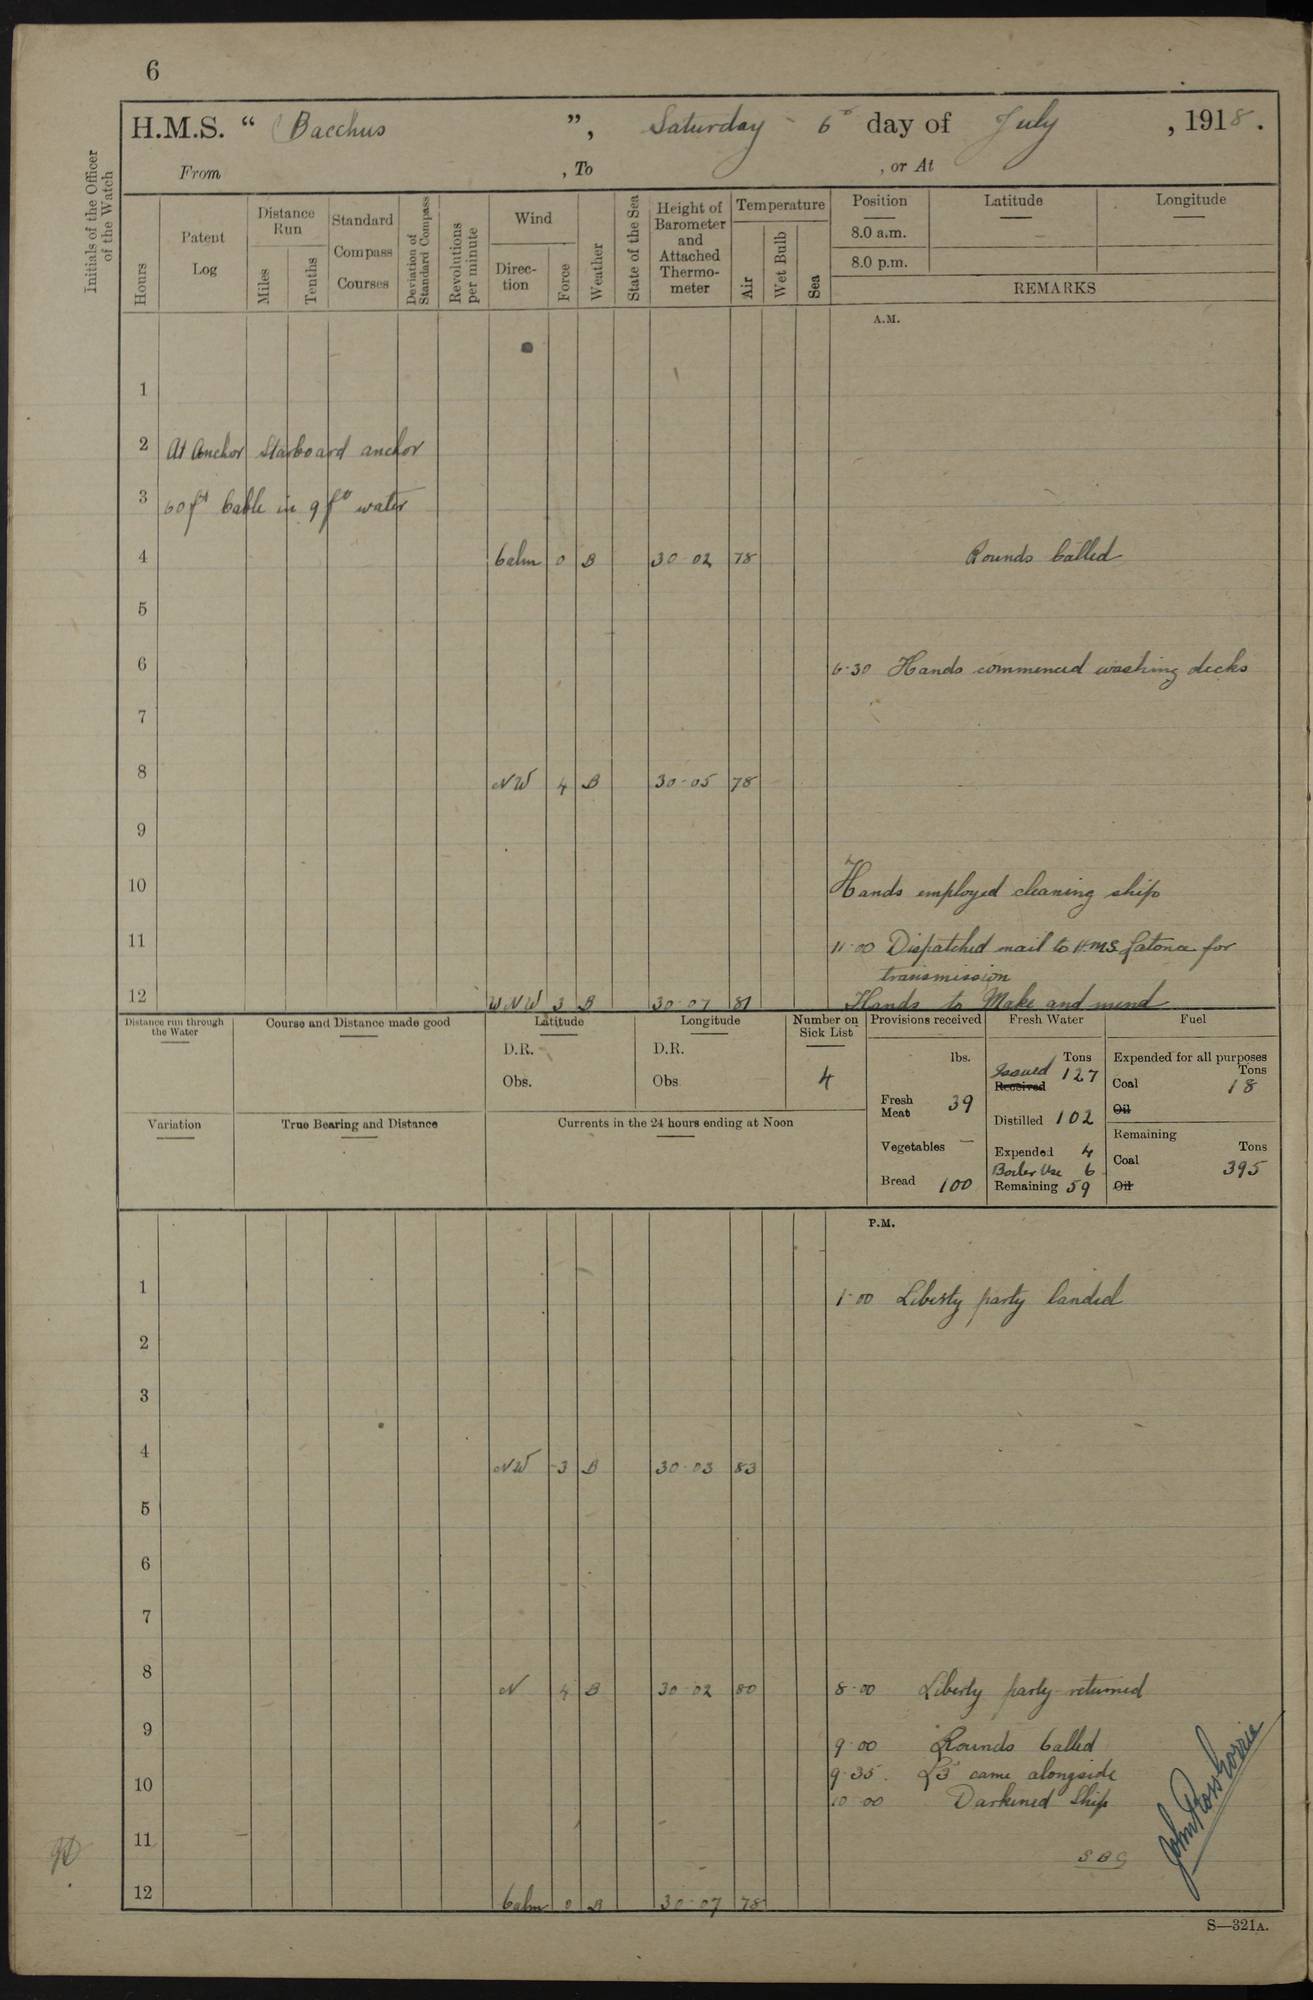 6
H.M.S. “ Bacchus ”, Saturday 6th day of July , 1918.
From , To , or At
Initials of the Officer of the Watch
Hours
Patent Log
Distance Run
Miles
Tenths
Standard Compass Courses
Deviation of Standard Compass
Revolutions per minute
Wind
Direction
Force
Weather
State of the Sea
Height of Barometer and Attached Thermometer
Temperature
Air
Wet Bulb
Sea
Position Latitude Longitude
8.0 a.m.
8.0 p.m.
REMARKS
A.M.
1
2 At Anchor Starboard anchor
3 60 fms Cable in 9 fms water
4 Calm 0 B 30·02 78 Rounds Called
5
6 6·30 Hands commenced washing decks
7
8 NW 4 B 30·05 78
9
10 Hands employed cleaning ship
11 11·00 Dispatched mail to H.M.S. Latona for
transmission
12 WNW 3 B 30·07 81 Hands to Make and mend
Distance run through the Water
Course and Distance made good
Latitude
D.R.
Obs.
Longitude
D.R.
Obs
Number on Sick List
4
Provisions received
lbs.
Fresh Meat 39
Vegetables —
Bread 100
Fresh Water
Tons
Issued 127
Received
Distilled 102
Expended 4
Boiler Use 6
Remaining 59
Fuel
Expended for all purposes
Tons
Coal 18
Oil
Remaining
Tons
Coal 395
Oil
Variation
True Bearing and Distance
Currents in the 24 hours ending at Noon
P.M.
1 1·00 Liberty party landed
2
3
4 NW 3 B 30·03 83
5
6
7
8 N 4 B 30·02 80 8·00 Liberty party returned
9 9·00 Rounds Called
9·35. L3 came alongside
10 10·00 Darkened Ship
11
SBG
12 Calm 0 B 30·07 78
S—321A.